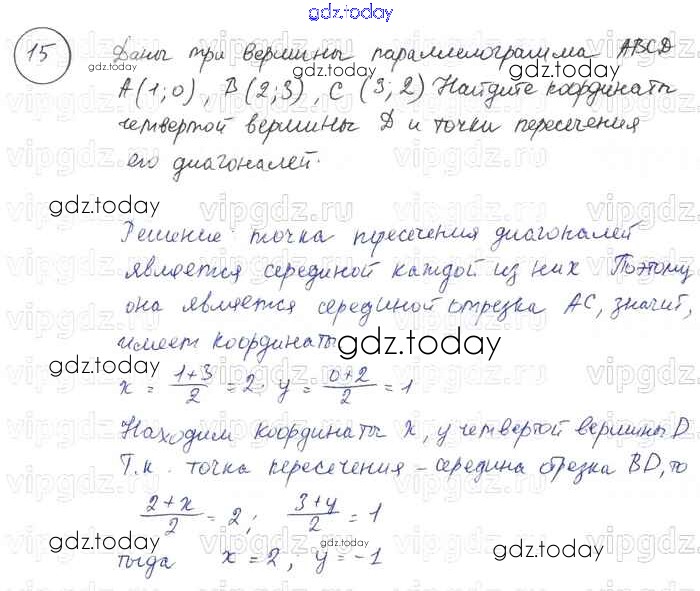 gdz.today
15 Даны три вершины параллелограмма ABCD
A(1;0), B(2;3), C(3;2) Найдите координаты
четвертой вершины D и точки пересечения
его диагоналей.
Решение: точка пересечения диагоналей
является серединой каждой из них Поэтому
она является серединой отрезка AC, значит,
имеет координаты
x = (1+3)/2 = 2; y = (0+2)/2 = 1
Находим координаты x, y четвертой вершины D
Т.к. точка пересечения – середина отрезка BD, то
(2+x)/2 = 2; (3+y)/2 = 1
тогда x = 2; y = -1